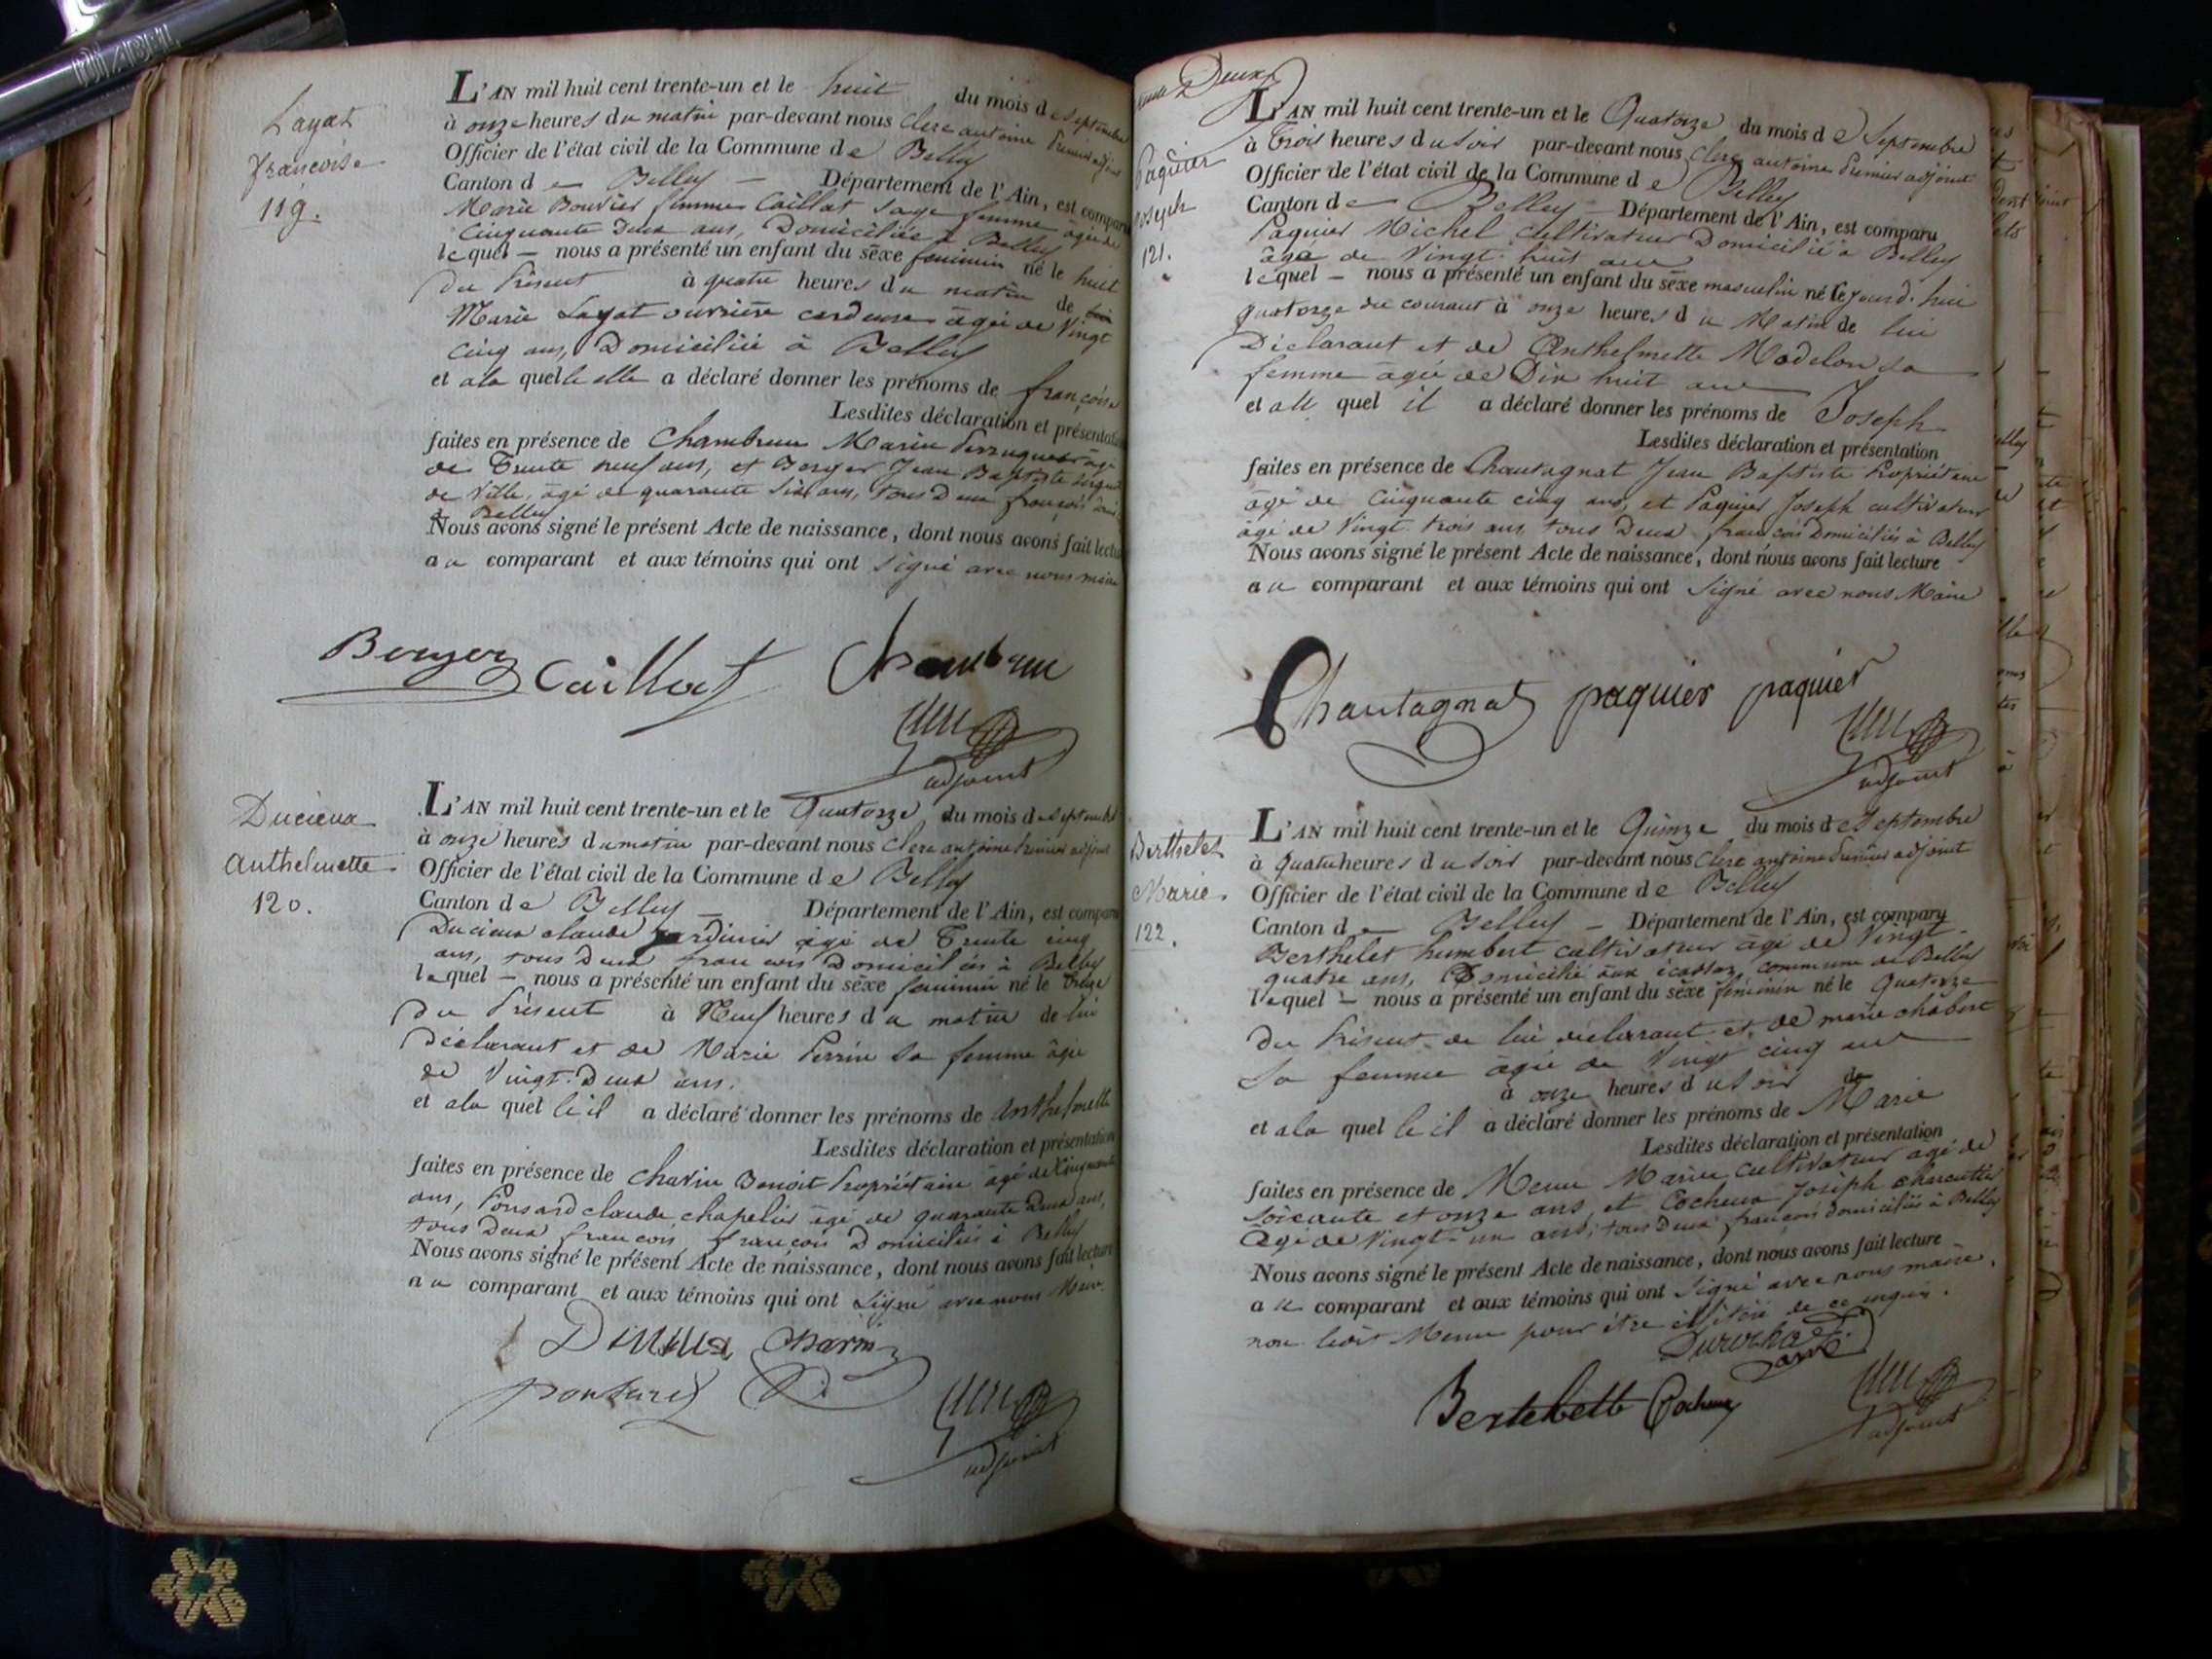 DIABEL
Layat
françoise
119.
L'AN mil huit cent trente-un et le huit du mois de septembre
à onze heures du matin par-devant nous Clerc antoine Premier adjoint
Officier de l'état civil de la Commune de Belley
Canton de Belley — Département de l'Ain, est comparu
Marie Bouvier femme Caillat sage femme âgée de
cinquante deux ans, Domiciliée à Belley
lequel — nous a présenté un enfant du sèxe feminin né le huit
du Présent à quatre heures du matin de
Marie Layat ouvrière cardeuse âgée de Vingt
cinq ans, Domiciliée à Belley
et ala quelle elle a déclaré donner les prénoms de françoise
Lesdites déclaration et présentation
faites en présence de Chambrun Marin Perruquier âgé
de Trente neuf ans, et Berger Jean Baptiste sergent
de Ville, âgé de quarante six ans, tous Deux français
à Belley
Nous avons signé le présent Acte de naissance, dont nous avons fait lecture
au comparant et aux témoins qui ont signé avec nous maire
Berger Caillat Chambrun
adjoint
Ducieux
Anthelmette
120.
L'AN mil huit cent trente-un et le Quatorze du mois de septembre
à onze heures du matin par-devant nous Clerc antoine Premier adjoint
Officier de l'état civil de la Commune de Belley
Canton de Belley — Département de l'Ain, est comparu
Ducieux claude jardinier âgé de Trente cinq
ans, tous Deux francois Domiciliés à Belley
lequel — nous a présenté un enfant du sèxe feminin né le treize
du Présent à Neuf heures du matin de lui
Déclarant et de Marie Perrin sa femme âgée
de Vingt-Deux ans.
et ala quelle il a déclaré donner les prénoms de Anthelmette
Lesdites déclaration et présentation
faites en présence de Charin Benoit Propriétaire âgé de Cinquante
ans, Ponsard claude chapelier âgé de quarante Deux ans,
tous Deux francois françois Domiciliés à Belley
Nous avons signé le présent Acte de naissance, dont nous avons fait lecture
au comparant et aux témoins qui ont signé avec nous Maire
Ducieux Charin
ponsard
adjoint
Deux
Paquier
Joseph
121.
L'AN mil huit cent trente-un et le Quatorze du mois de Septembre
à Trois heures du soir par-devant nous Clerc antoine Premier adjoint
Officier de l'état civil de la Commune de Belley
Canton de Belley — Département de l'Ain, est comparu
Paquier Michel Cultivateur Domicilié à Belley
âgé de Vingt-huit ans
lequel — nous a présenté un enfant du sèxe masculin né le jourd'hui
quatorze du courant à onze heures du Matin de lui
Déclarant et de Anthelmette Modelon sa
femme âgée de Dix huit ans
et au quel il a déclaré donner les prénoms de Joseph
Lesdites déclaration et présentation
faites en présence de Chautagnat Jean Baptiste Propriétaire
âgé de cinquante cinq ans, et Paquier Joseph cultivateur
âgé de Vingt-trois ans tous Deux francois Domiciliés à Belley
Nous avons signé le présent Acte de naissance, dont nous avons fait lecture
au comparant et aux témoins qui ont Signé avec nous Maire
Chautagnat paquier paquier
adjoint
Berthelet
Marie
122.
L'AN mil huit cent trente-un et le Quinze du mois de Septembre
à Quatre heures du soir par-devant nous Clerc antoine Premier adjoint
Officier de l'état civil de la Commune de Belley
Canton de Belley — Département de l'Ain, est comparu
Berthelet humbert cultivateur âgé de Vingt-
quatre ans, Domicilié aux écassaz commune de Belley
lequel — nous a présenté un enfant du sèxe feminin né le Quatorze
du Présent de lui déclarant et de marie chabert
sa femme âgée de Vingt cinq ans
à onze heures du soir de
et ala quelle il a déclaré donner les prénoms de Marie
Lesdites déclaration et présentation
faites en présence de Menu Marin cultivateur âgé de
soixante et onze ans, et Cocheux Joseph charcutier
âgé de Vingt-un ans, tous Deux francois domiciliés à Belley
Nous avons signé le présent Acte de naissance, dont nous avons fait lecture
au comparant et aux témoins qui ont signé avec nous maire,
non ledit Menu pour être illitéré de ce requis.
Bertehette Cocheux
adjoint